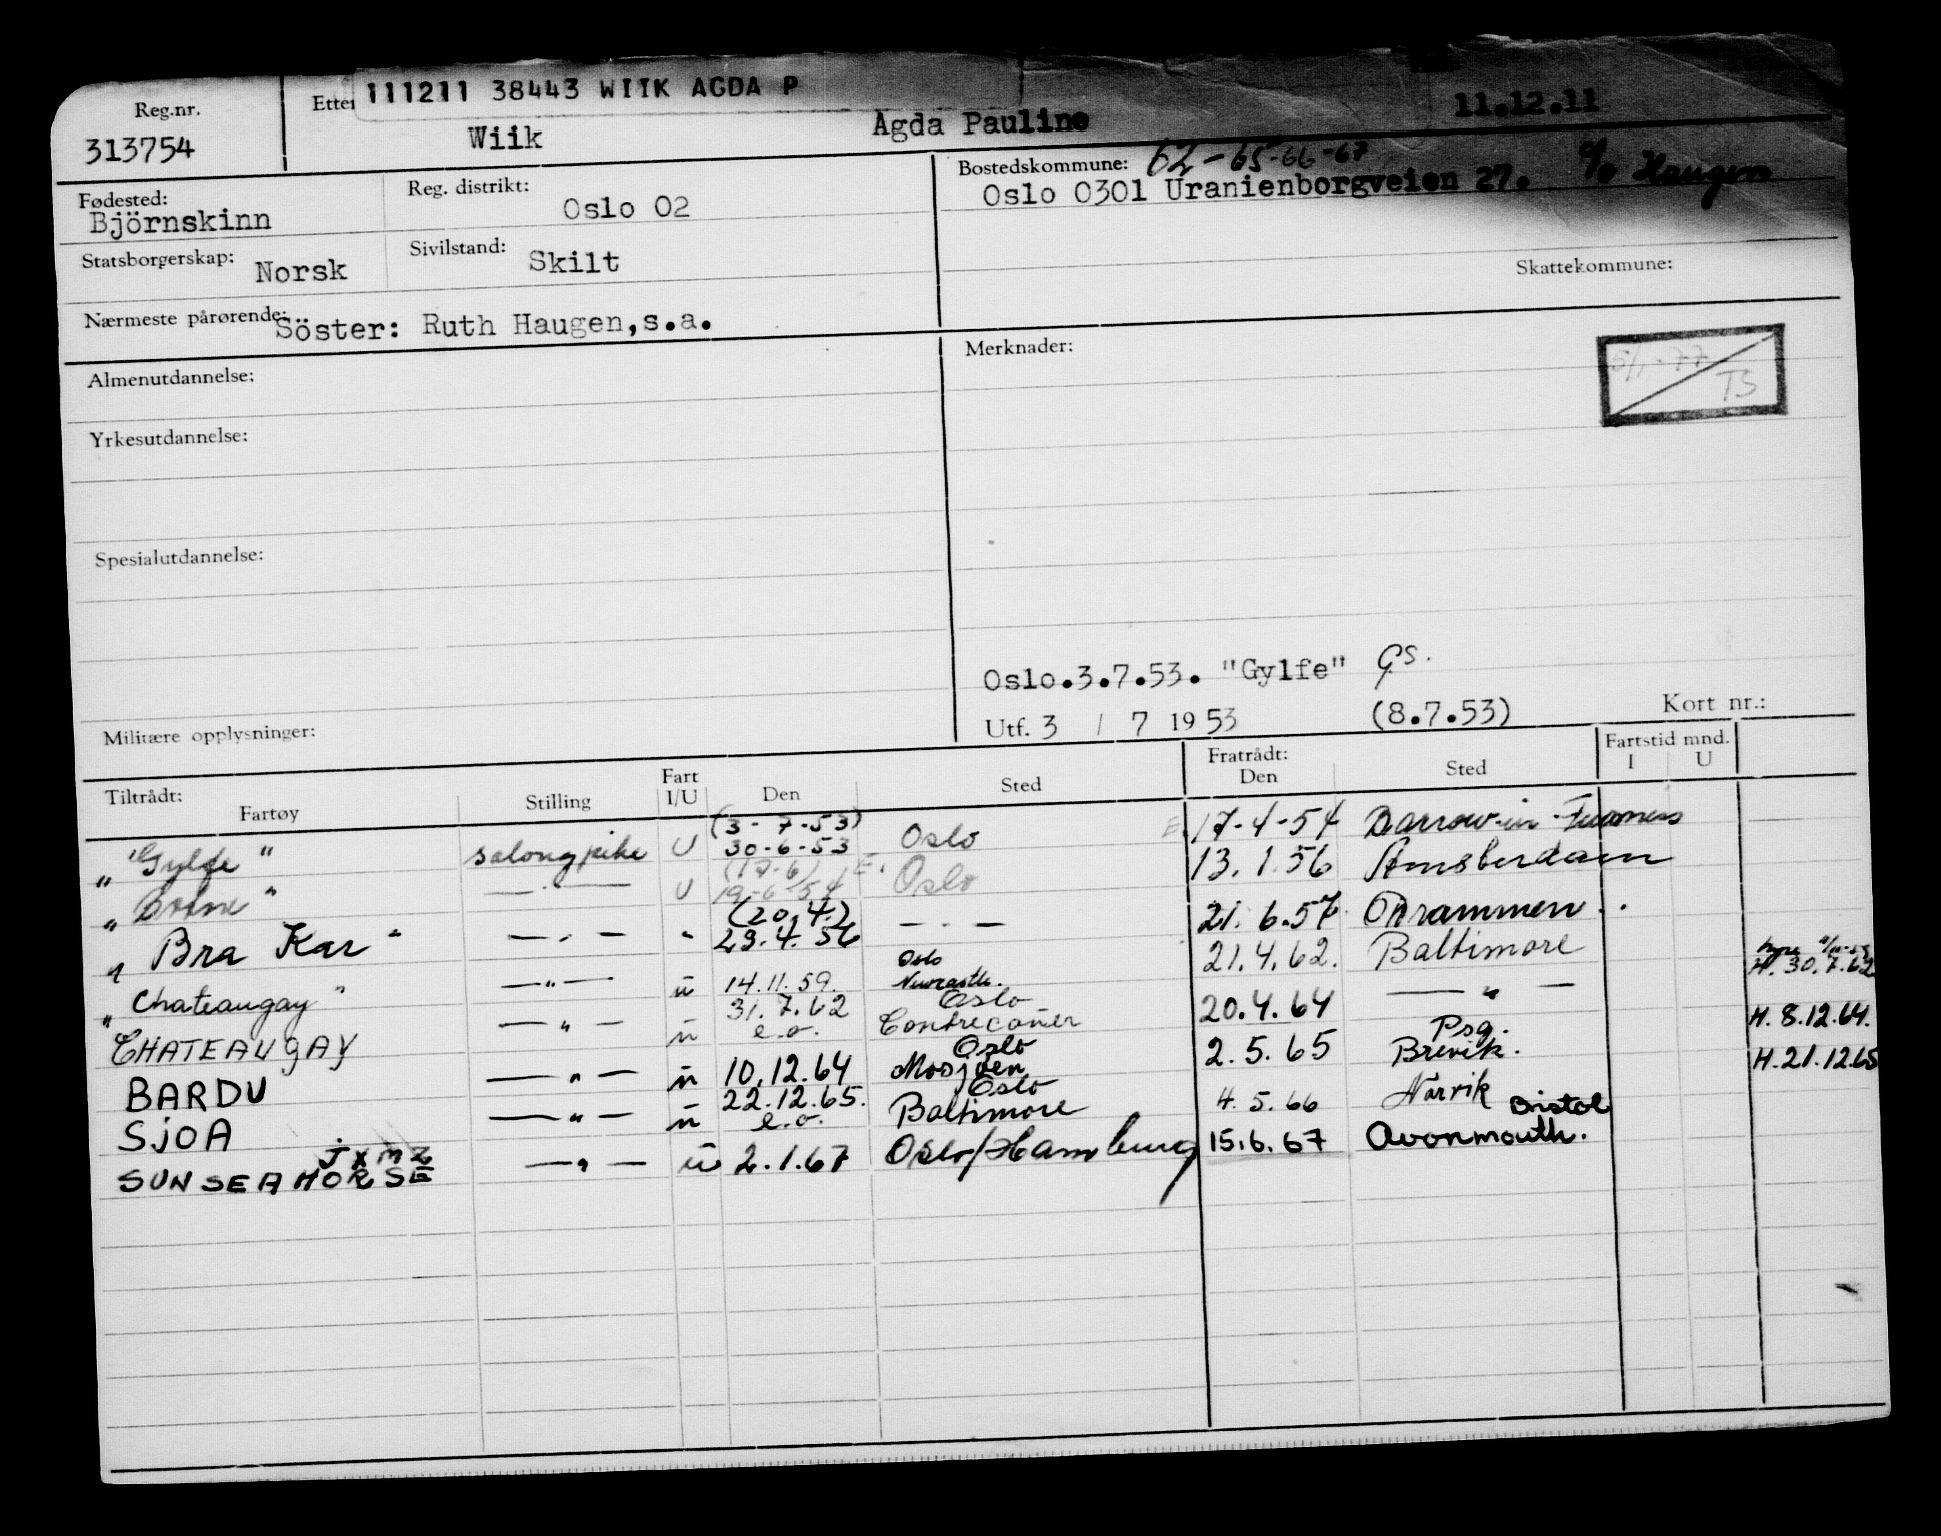 111211 38443 WIIK AGDA P
Reg.nr.
313754
Wiik Agda Pauline 11.12.11
Fødested:
Björnskinn
Reg. distrikt:
Oslo 02
Bostedskommune: 62-65-66-67
Oslo 0301 Uranienborgveien 27. c/o Haugen
Statsborgerskap: Norsk
Sivilstand: Skilt
Skattekommune:
Nærmeste pårørende: Söster: Ruth Haugen,s.a.
Almenutdannelse:
Merknader:
5/1-77
TS
Yrkesutdannelse:
Spesialutdannelse:
Oslo.3.7.53. "Gylfe" GS.
Militære opplysninger:
Utf. 3 / 7 1953 (8.7.53) Kort nr.:
Tiltrådt: Fartøy Stilling Fart I/U Den Sted Fratrådt: Den Sted Fartstid mnd. I U
(3-7-53)
"Gylfe" salongpike U 30-6-53 Oslo 17-4-54
(17-6)
" " — " — U 19-6-54 Oslo 13.1.56 Amsterdam
(20.4.)
" Bra Kar " — " — " 29.4.56 — " — 21.6.57 Drammen
Oslo
" Chateaugay " — " — u 14.11.59. Newcastle. 21.4.62. Baltimore H. 30.7.62
31.7.62 Oslo
CHATEAUGAY — " — u e.o. Contrecoeur 20.4.64 — " — H. 8.12.64.
Oslo Psg.
BARDU — " — u 10.12.64 Mosjøen 2.5.65 Brevik. H. 21.12.65
22.12.65. Oslo
SJOA — " — u e.o. Baltimore 4.5.66 Narvik
JXMZ Bristol
SUNSEAHORSE — " — u 2.1.67 Oslo/Hamburg 15.6.67 Avonmouth.